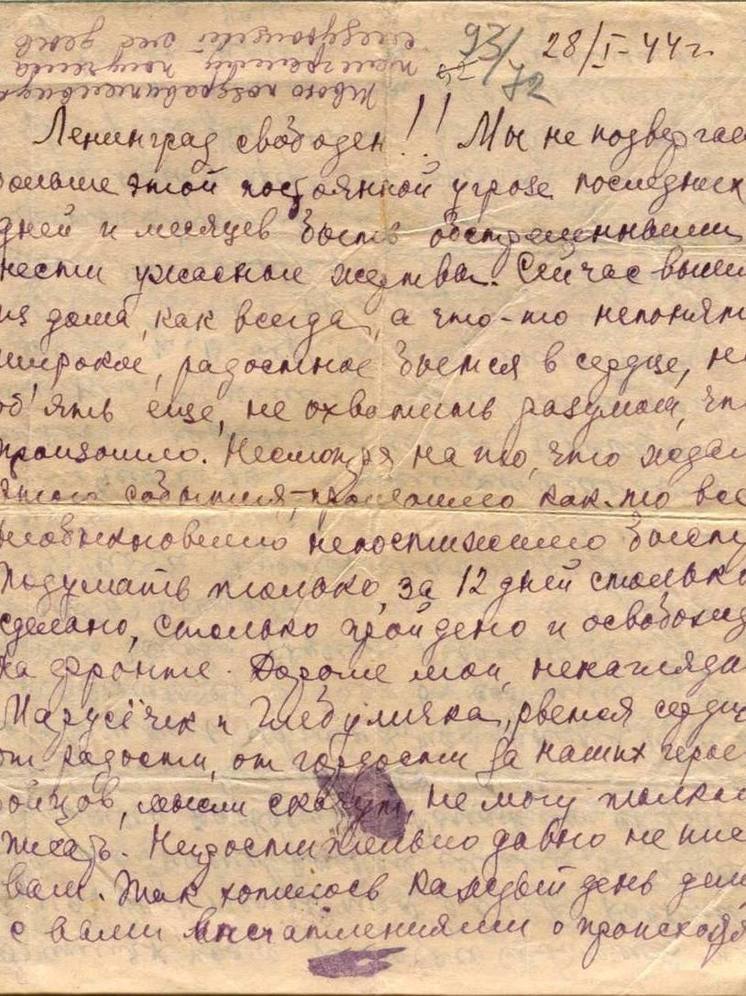 твою поздравительную
телеграмму получила
следующий же день
93/72
28/I-44г.
Ленинград свободен!! Мы не подвергаем
больше этой постоянной угрозе последних
дней и месяцев быть обстрелянными
нести ужасные жертвы. Сейчас выш
из дома, как всегда, а что-то непонят
широкое, радостное бьется в сердце, не
об'ять еще, не охватить разумом, чт
произошло. Несмотря на то, что ждал
этого события, произошло как-то все
необыкновенно непостижимо быстр
Подумать только, за 12 дней столько
сделано, столько пройдено и освобожд
на фронте. Дорогие мои, ненагляд
Марусёчек и Глебуличка, рвется сердц
от радости, от гордости за наших геро
бойцов, мысли скачут, не могу толком
писать. Непростительно давно не пис
вам. Так хотелось каждый день дел
с вами впечатлениями о происход